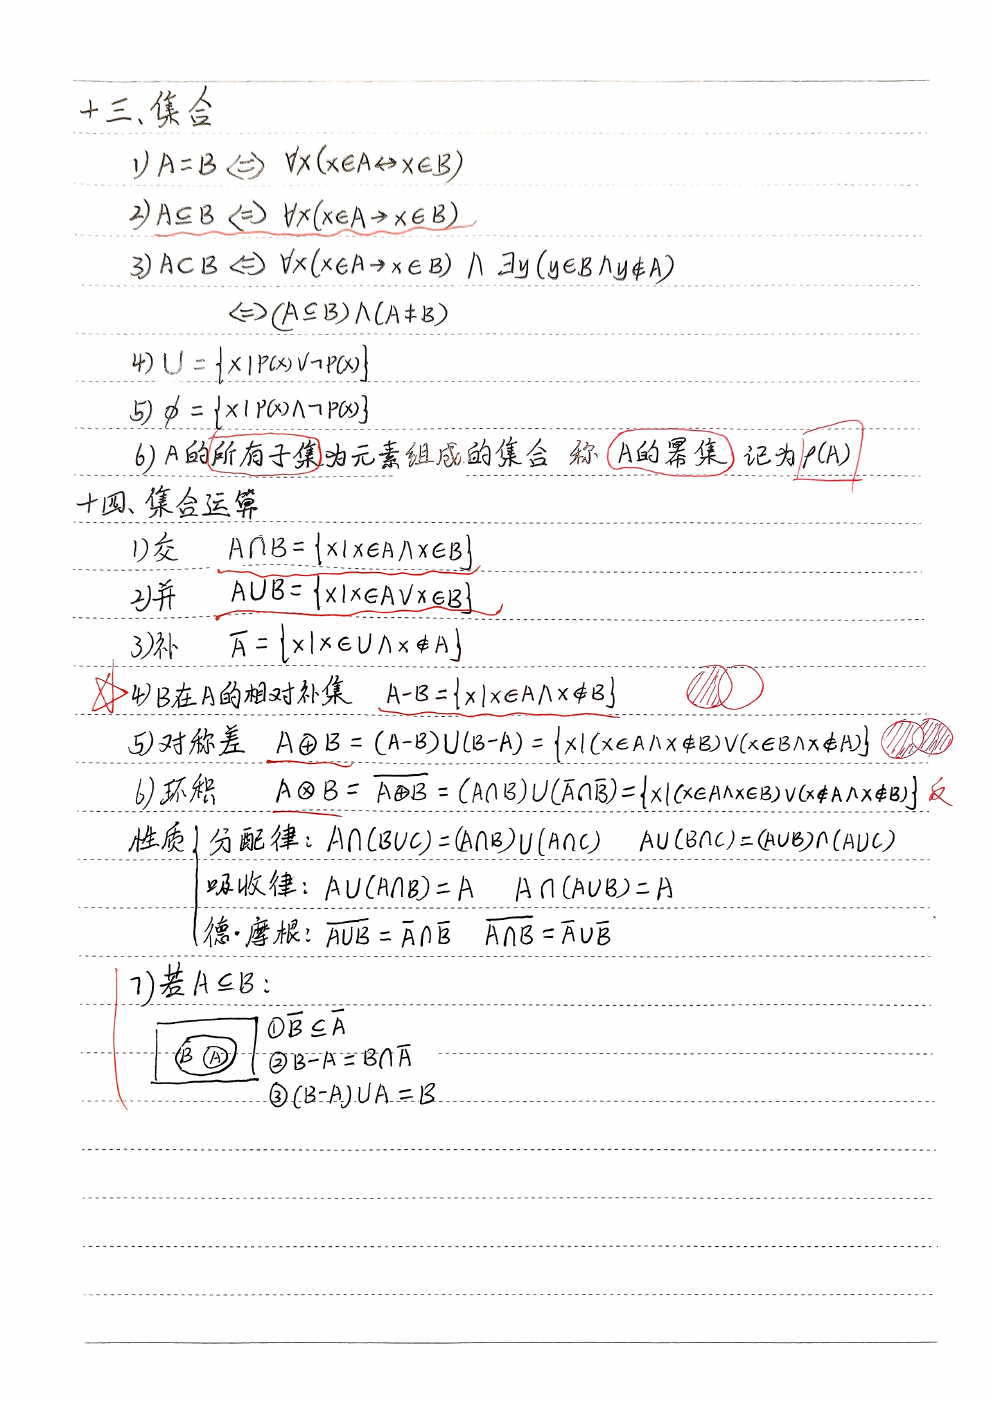 十三、集合
1) A=B ⇔ ∀x(x∈A↔x∈B)
2) A⊆B ⇔ ∀x(x∈A→x∈B)
3) A⊂B ⇔ ∀x(x∈A→x∈B) ∧ ∃y(y∈B∧y∉A)
⇔(A⊆B)∧(A≠B)
4) U={x|P(x)∨¬P(x)}
5) ϕ={x|P(x)∧¬P(x)}
6) A的所有子集为元素组成的集合 称 A的幂集 记为ρ(A)
十四、集合运算
1)交 A∩B={x|x∈A∧x∈B}
2)并 A∪B={x|x∈A∨x∈B}
3)补 A̅={x|x∈U∧x∉A}
☆4)B在A的相对补集 A-B={x|x∈A∧x∉B}
5)对称差 A⊕B=(A-B)∪(B-A)={x|(x∈A∧x∉B)∨(x∈B∧x∉A)}
6)环积 A⊗B= A̅⊕̅B̅ =(A∩B)∪(A̅∩B̅)={x|(x∈A∧x∈B)∨(x∉A∧x∉B)} 反
性质{分配律: A∩(B∪C)=(A∩B)∪(A∩C) A∪(B∩C)=(A∪B)∩(A∪C)
吸收律: A∪(A∩B)=A A∩(A∪B)=A
德·摩根: A̅∪̅B̅=A̅∩B̅ A̅∩̅B̅=A̅∪B̅
7)若A⊆B:
①B̅⊆A̅
B A ②B-A=B∩A̅
③(B-A)∪A=B